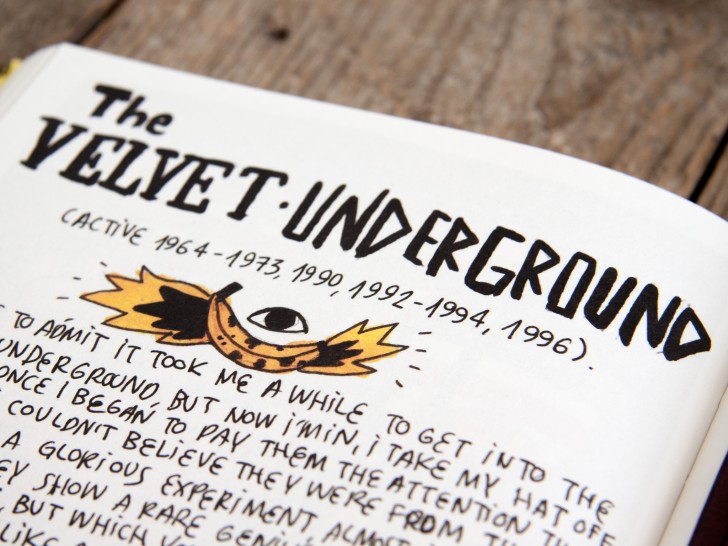 The
VELVET·UNDERGROUND
(ACTIVE 1964-1973, 1990, 1992-1994, 1996).
TO ADMIT IT TOOK ME A WHILE TO GET INTO THE
UNDERGROUND, BUT NOW I'M IN, I TAKE MY HAT OFF
ONCE I BEGAN TO PAY THEM THE ATTENTION
COULDN'T BELIEVE THEY WERE FROM THE
A GLORIOUS EXPERIMENT
SHOW A RARE
BUT WHICH
LIKE